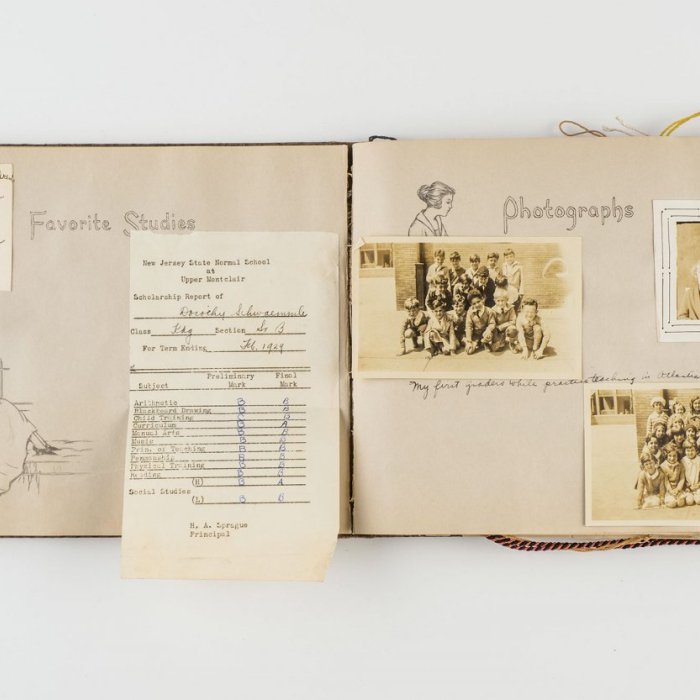 Favorite Studies
New Jersey State Normal School
at
Upper Montclair
Scholarship Report of
Dorothy Schwaemmle
Class Kdg Section Sr B
For Term Ending Feb. 1929
Preliminary Final
Subject Mark Mark
Arithmetic B B
Blackboard Drawing B B
Child Training B
Curriculum B A
Manual Arts B B
Music B B
Prin. of Teaching B B
Penmanship B B
Physical Training B B
Reading B B
(H) B A
Social Studies
(L) B B
H. A. Sprague
Principal
Photographs
My first graders while practice teaching in Atlantic